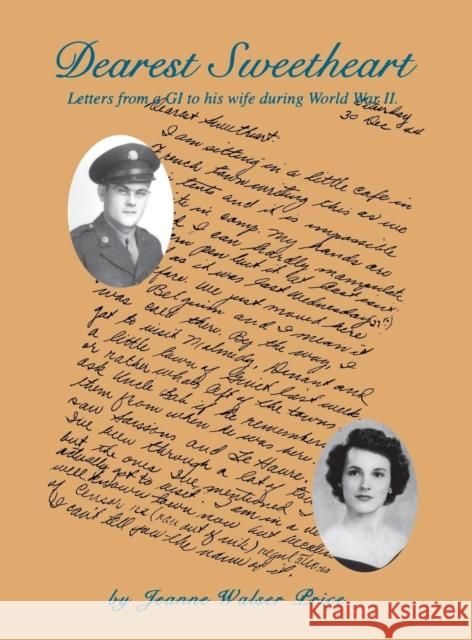 Dearest Sweetheart
Letters from a GI to his wife during World War II.
Saturday
30 Dec
Dearest Sweetheart:
I am sitting in a little cafe in
French town writing this as we
tents and it is impossible
in camp. My hands are
I can hardly manipulate
pen but it at least isn't
as it was last Wednesday (27th)
We just moved here
Belgium and I mean it
was cold there. By the way, I
got to visit Malmedy, Dinant and
a little town of Givet last week.
or rather what's left of the towns
ask Uncle if he remembers
them from when he was here
saw Soissons and Le Havre.
I've been through a lot of
but the ones I've mentioned I
actually got to visit. I am in a
well known town now but because
of Censor
I can't tell you the name of it.
by Jeanne Walser Price